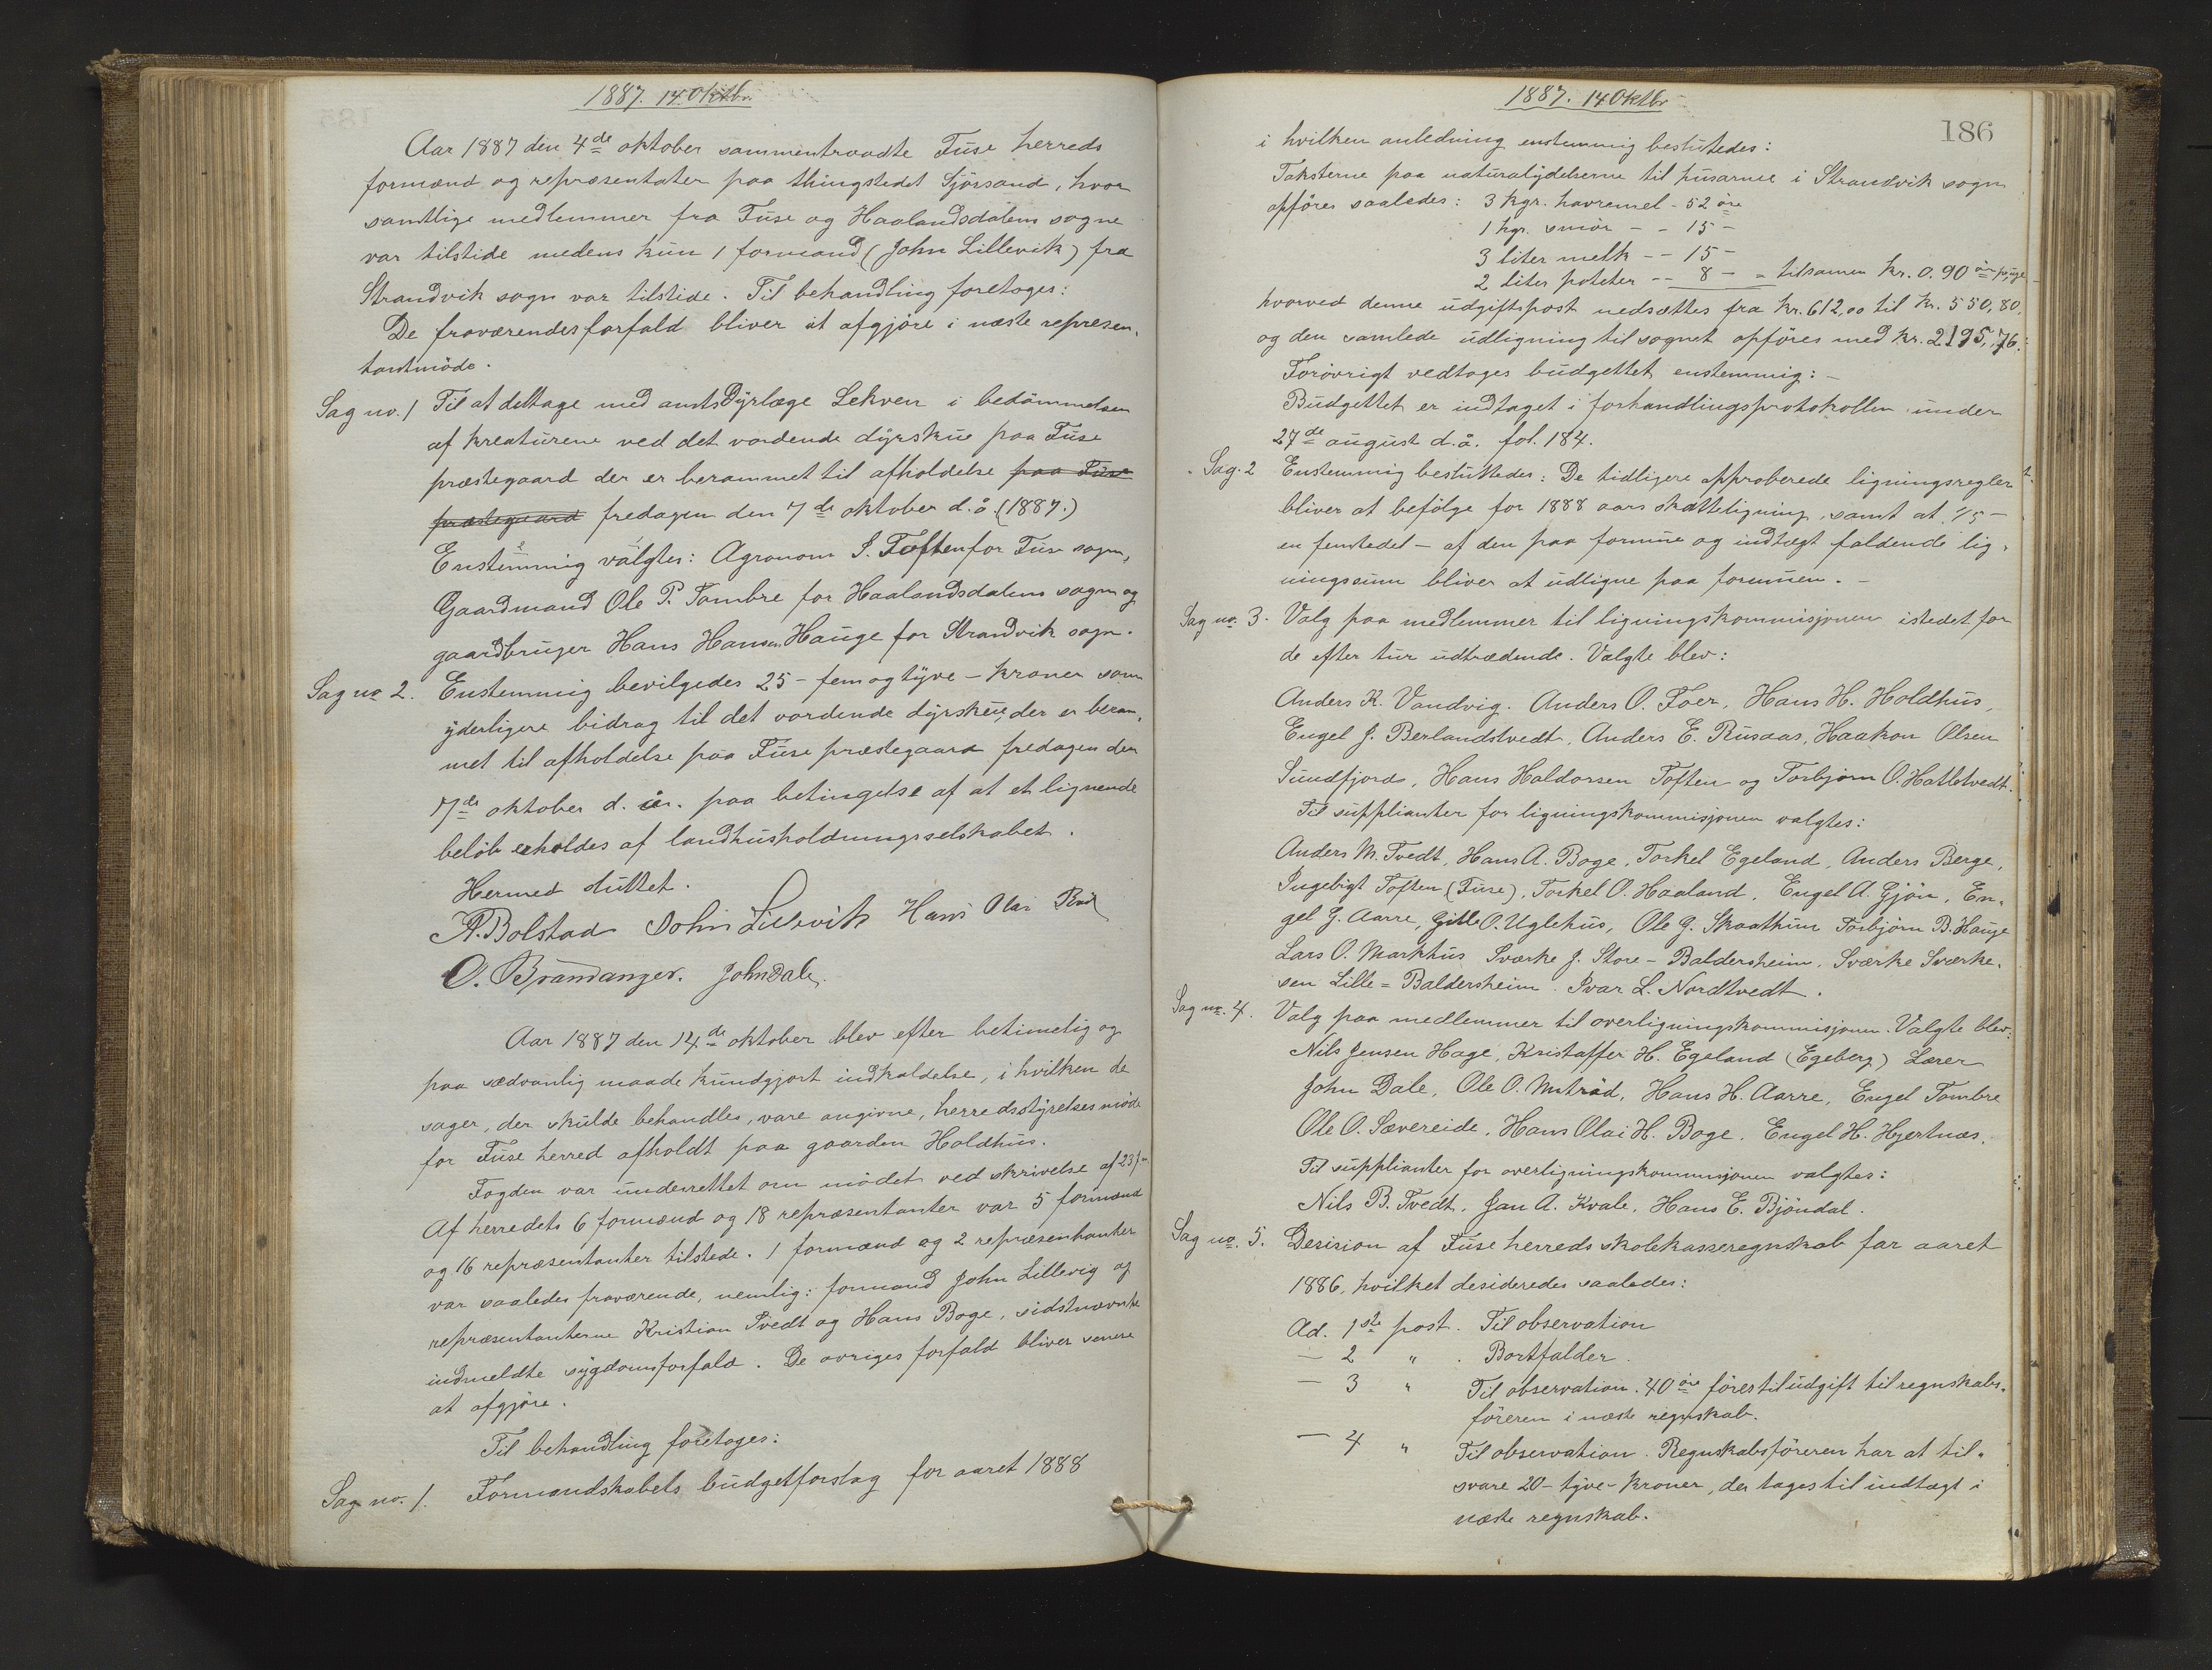 1887. 14 Oktbr.
Aar 1887 den 4de oktober sammentraadte Fuse herreds
formænd og repræsentater paa thingstedet Sjörsand, hvor
samtlige medlemmer fra Fuse og Haalandsdalens sogne
var tilstide medens kun 1 formand (John Lillevik) fra
Strandvik sogn var tilstide. Til behandling foretoges:
De fraværendes forfald bliver at afgjöre i næste represen-
tantmöde.
Sag no. 1 Til at deltage med amtsDyrlæge Lekven i bedömmelsen
af kreaturene ved det vordende dyrskue paa Fuse
præstegaard der er berammet til afholdelse paa Fuse
præstegaard fredagen den 7de oktober d.å (1887.)
Enstemmig valgtes: Agronom I. Toften for Fuse sogn,
Gaardmand Ole P. Tombre for Haalandsdalens sogn og
gaardbruger Hans Hansen Hauge for Strandvik sogn.
Sag no 2. Enstemmig bevilgedes 25 - fem og tyve - kroner som
yderligere bidrag til det vordende dyrskue, der er beram-
met til afholdelse paa Fuse præstegaard fredagen den
7de oktober d. år. paa betingelse af at et lignende
belöb erholdes af landhusholdningsselskabet.
Hermed sluttet.
A. Bolstad John Lillevik Hans Olai
O. Brandanger. John Dale.
Aar 1887 den 14de oktober blev efter betimelig og
paa sædvanlig maade kundgjort indkaldelse, i hvilken de
sager, der skulde behandles, vare angivne, herredsstyrelsesmöde
for Fuse herred afholdt paa gaarden Holdhus.
Fogden var underrettet om mödet ved skrivelse af 23/9.
Af herredets 6 formænd og 18 repræsentanter var 5 formænd
og 16 repræsentanter tilstede. 1 formænd og 2 repræsentanter
var saaledes fraværende, nemlig: formand John Lillevig og
repræsentanterne Kristian Tvedt og Hans Boge, sidstnævnte
indmeldte sygdomsforfald. De övriges forfald bliver senere
at afgjöre.
Til behandling foretoges:
Sag no. 1. Formandskabets budgetforslag for aaret 1888
1887. 14 Oktbr
186
i hvilken anledning enstemmig beslutedes:
Taksterne paa naturalydelserne til husarme i Strandvik sogn
opföres saaledes: 3 kgr. havremel - 52 öre
1 kgr. smör - - 15 -
3 liter melk - - 15 -
2 liter poteter - - 8 - = tilsamen kr. 0.90
hvorved denne udgiftspost nedsættes fra kr. 612,00 til kr. 550,80,
og den samlede udligning til sognet opföres med kr. 2195,76.
Forövrigt vedtoges budgettet enstemmig: -
Budgettet er indtaget i forhandlingsprotokollen under
27de august d.å. fol. 184.
Sag. 2 Enstemmig besluttedes: De tidligere approberede ligningsregler
bliver at befölge for 1888 aars skatteligning, samt at 1/5 -
en femtedel - af den paa formue og indtægt faldende lig-
ningssum bliver at udligne paa formuen. -
Sag no. 3. Valg paa medlemmer til ligningskommisjonen istedet for
de efter tur udtrædende. Valgte blev:
Anders K. Vandvig. Anders O. Foer, Hans H. Holdhus,
Engel J. Berlandstvedt, Anders E. Rusaas, Haakon Olsen
Sundfjord, Hans Haldorsen Toften og Torbjörn O. Hatletvedt.
Til supplianter for ligningskommisjonen valgtes:
Anders M. Tvedt, Hans A. Boge, Torkel Egeland, Anders Berge,
Ingebigt Toften (Fuse), Torkel O. Haaland, Engel A. Gjön, En-
gel G. Aarre, Gitle O. Uglehus, Ole G. Skaathun Torbjörn B. Hauge
Lars O. Markhus Sværke J. Store - Baldersheim. Sværke Sværke-
sen Lille = Baldersheim. Ivar L. Nordtvedt.
Sag no. 4. Valg paa medlemmer til overligningskommisjonen. Valgte blev:
Nils Jensen Hage, Kristaffer H. Egeland (Egeberg) Lærer
John Dale, Ole O. Mutråd, Hans H. Aarre, Engel Tombre
Ole O. Sævereide, Hans Olai H. Boge. Engel H. Hjertnæs.
Til supplianter for overligningskommisjonen valgtes:
Nils B. Tvedt, Jan A. Kvale, Hans E. Bjöndal.
Sag no. 5. Desision af Fuse herreds skolekasseregnskab for aaret
1886, hvilket desideredes saaledes:
Ad. 1ste post. Til observation
— 2 " . Bortfalder.
— 3 " Til observation. 40 öre föres til udgift til regnskabs-
föreren i næste regnskab.
— 4 " Til observation. Regnskabsföreren har at til-
svare 20 - tyve - kroner, der tages til indtægt i
næste regnskab.